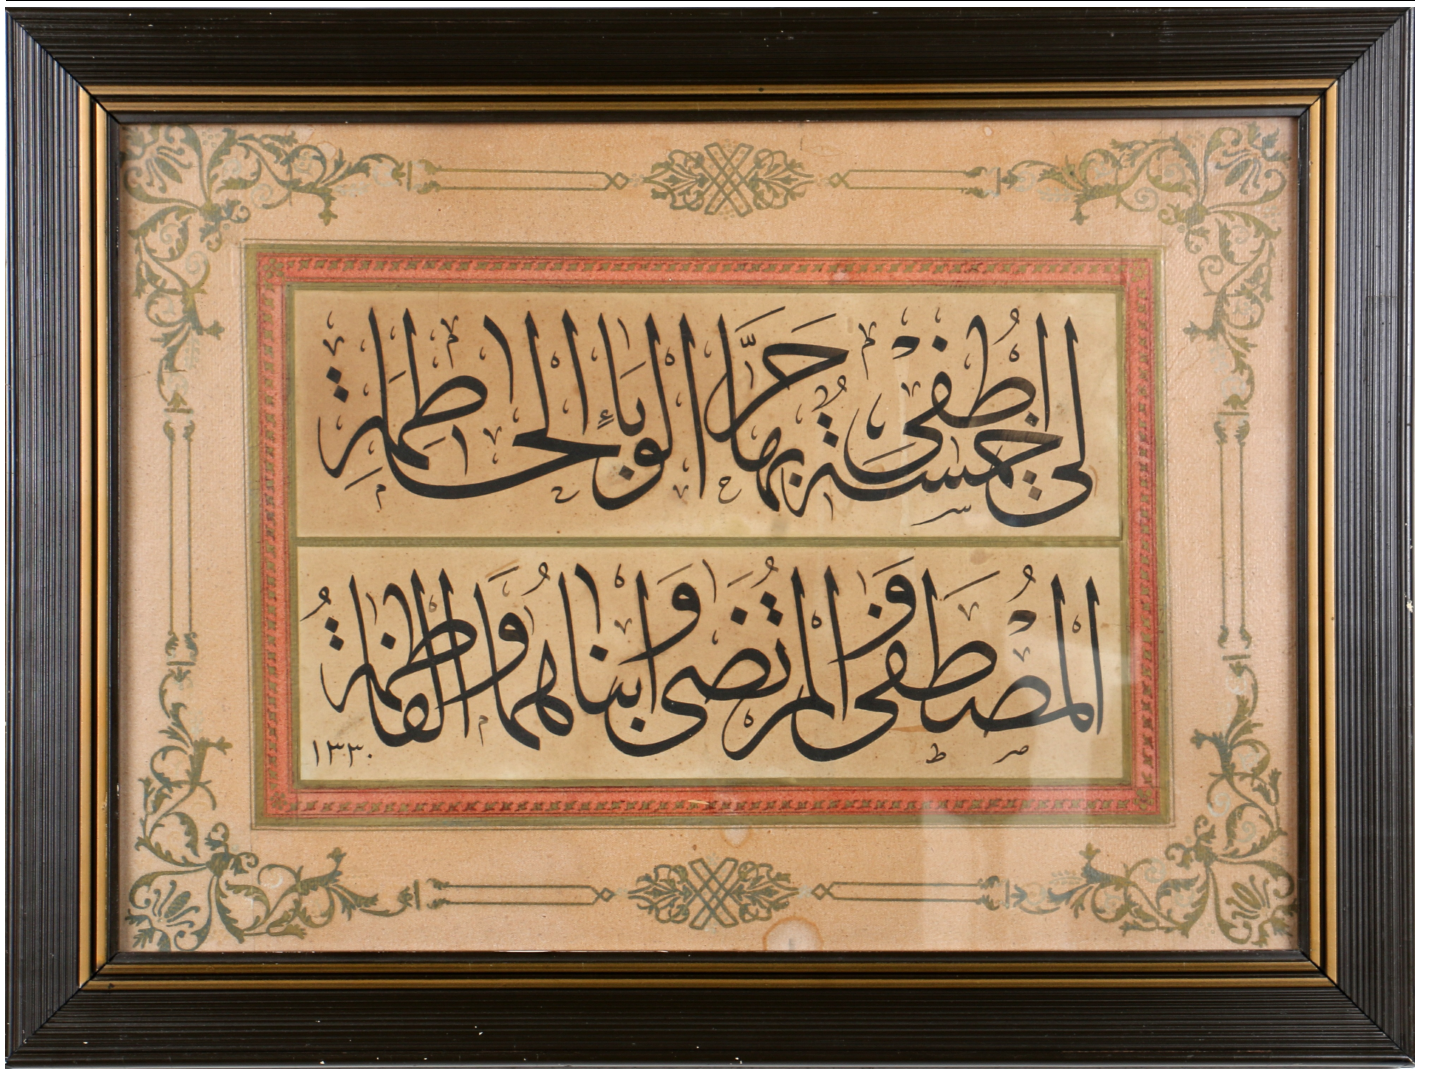 لي خمسة أطفي بها حر الوباء الحاطمة
المصطفى والمرتضى وابناهما والفاطمة
١٣٣٠